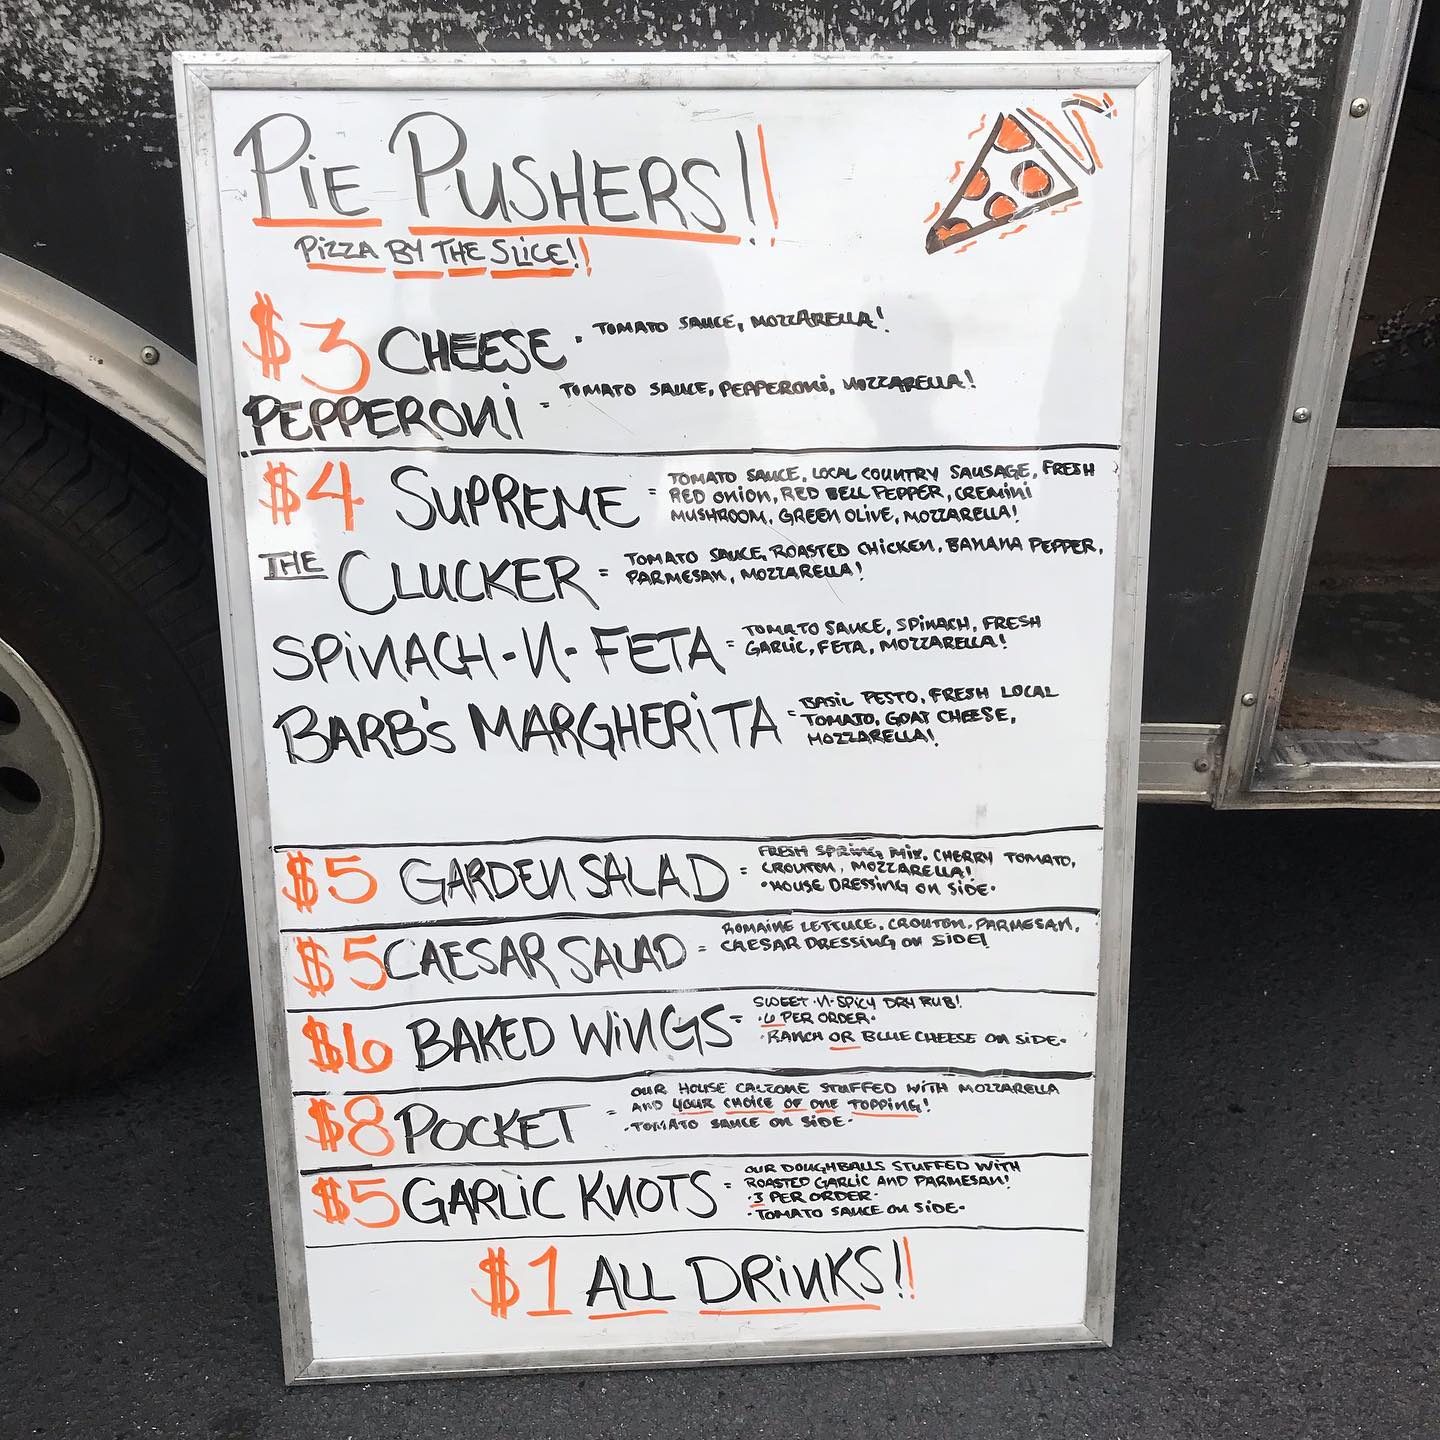 PiE PUSHERS!!
PiZZA BY THE SLiCE!!
$3 CHEESE · TOMATO SAUCE, MOZZARELLA!
PEPPERONi = TOMATO SAUCE, PEPPERONi, MOZZARELLA!
$4 SUPREME = TOMATO SAUCE, LOCAL COUNTRY SAUSAGE, FRESH
RED ONiON, RED BELL PEPPER, CREMiNi
MUSHROOM, GREEN OLiVE, MOZZARELLA!
THE CLUCKER = TOMATO SAUCE, ROASTED CHiCKEN, BANANA PEPPER,
PARMESAN, MOZZARELLA!
SPiNACH-N-FETA = TOMATO SAUCE, SPiNACH, FRESH
GARLiC, FETA, MOZZARELLA!
BARB'S MARGHERiTA = BASiL PESTO, FRESH LOCAL
TOMATO, GOAT CHEESE,
MOZZARELLA!
$5 GARDEN SALAD = FRESH SPRiNG MiX, CHERRY TOMATO,
CROUTON, MOZZARELLA!
·HOUSE DRESSiNG ON SiDE·
$5 CAESAR SALAD = ROMAiNE LETTUCE, CROUTON, PARMESAN,
CAESAR DRESSiNG ON SiDE!
$6 BAKED WiNGS = SWEET-N-SPiCY DRY RUB!
·6 PER ORDER·
·RANCH OR BLUE CHEESE ON SiDE·
$8 POCKET = OUR HOUSE CALZONE STUFFED WiTH MOZZARELLA
AND YOUR CHOiCE OF ONE TOPPiNG!
·TOMATO SAUCE ON SiDE·
$5 GARLiC KNOTS = OUR DOUGHBALLS STUFFED WiTH
ROASTED GARLiC AND PARMESAN!
·3 PER ORDER·
·TOMATO SAUCE ON SiDE·
$1 ALL DRiNKS!!